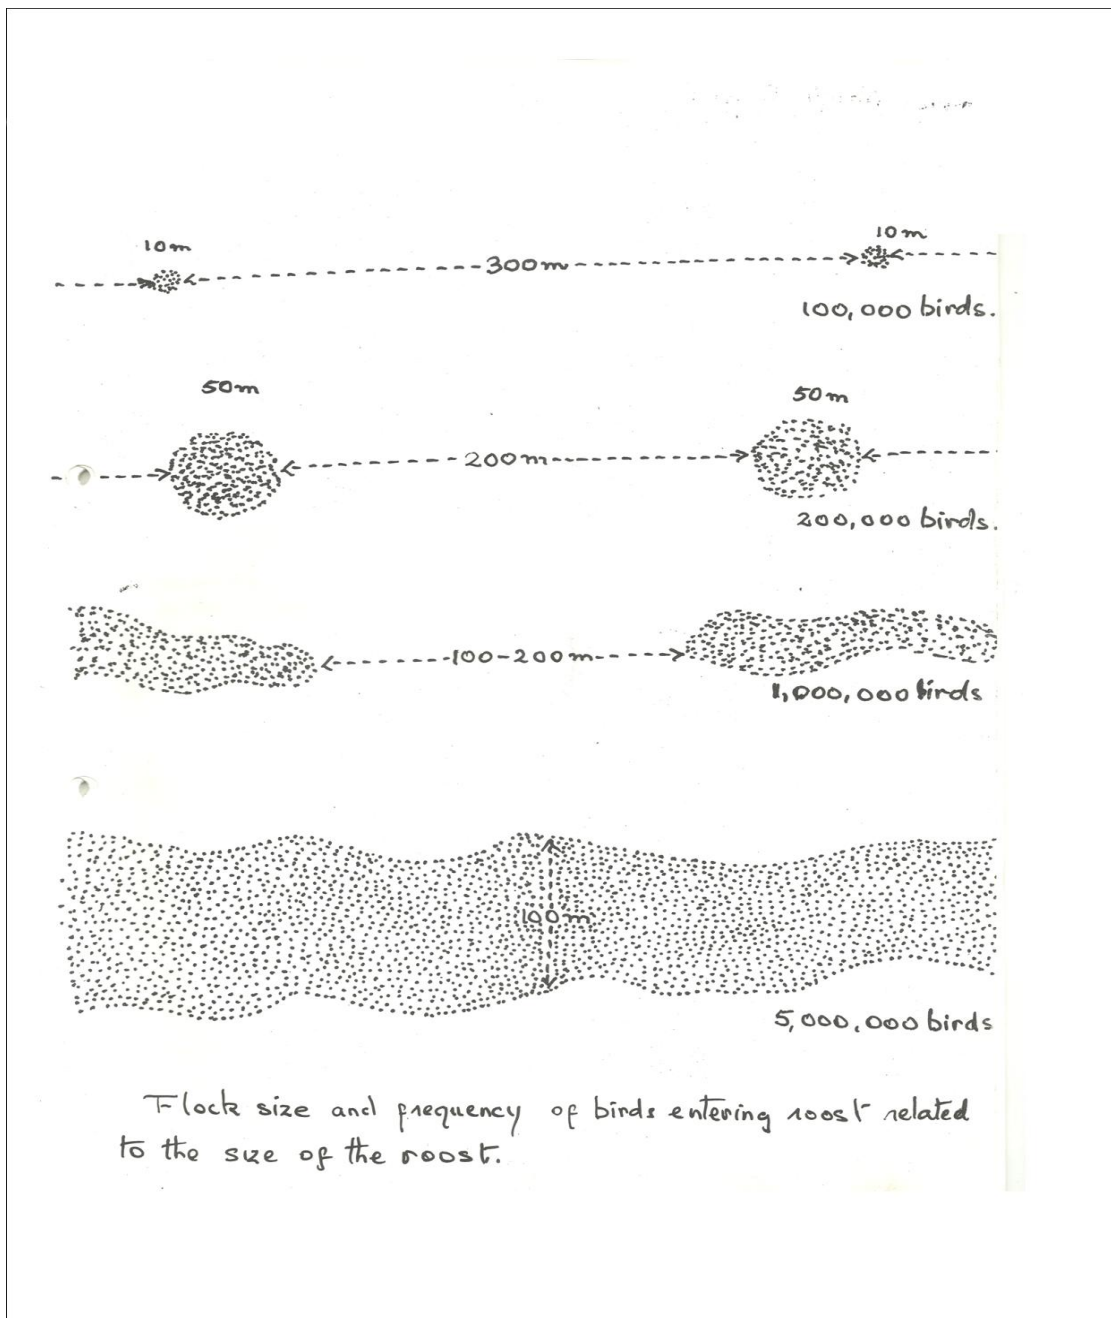 10m
10m
300m
100,000 birds.
50m
50m
200m
200,000 birds.
100-200m
1,000,000 birds
100m
5,000,000 birds
Flock size and frequency of birds entering roost related
to the size of the roost.